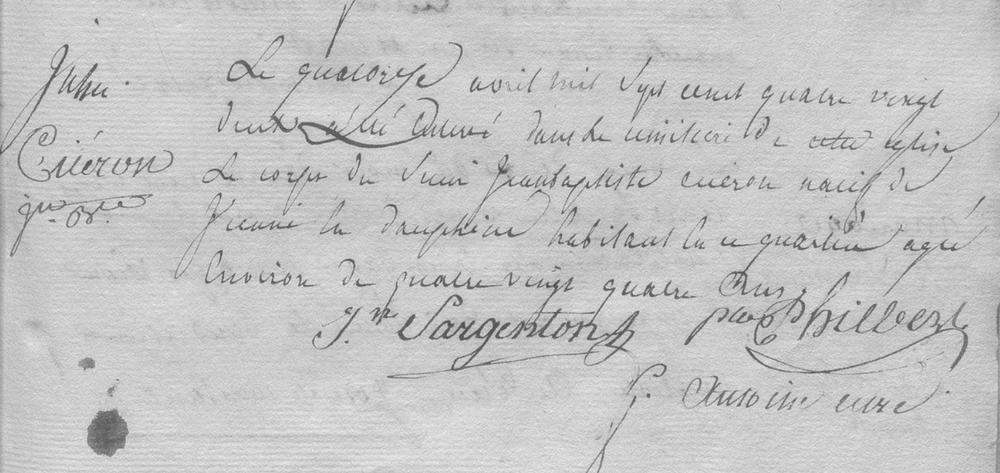 Inhu.
Cuéron
jn. Bte.
Le quatorze avril mil Sept cent quatre vingt
deux a été Enterré dans le cimitiere de cette eglise,
Le corps du Sieur Jeanbaptiste cuéron natif de
Vienne En dauphiné habitant En ce quartier agé
Environ de quatre vingt quatre Ans.
Jn Sargenton Philbert
f. Antoine curé.